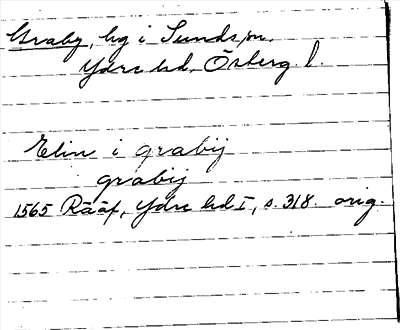 Graby, by i Sunds sn.
Ydre hd, Österg. l.
Elin i grabij
grabij
1565 Rääf, Ydre hd I, s. 318. orig.